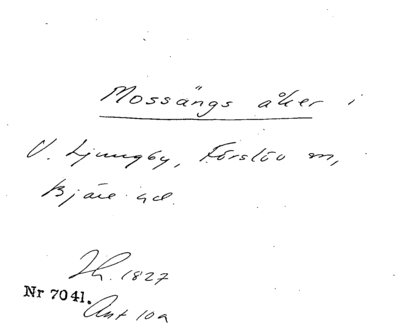 Mossängs åker i
V. Ljungby, Förslöv m,
Bjäre hd.
Jh. 1827
Nr 7041.
Ant 10a